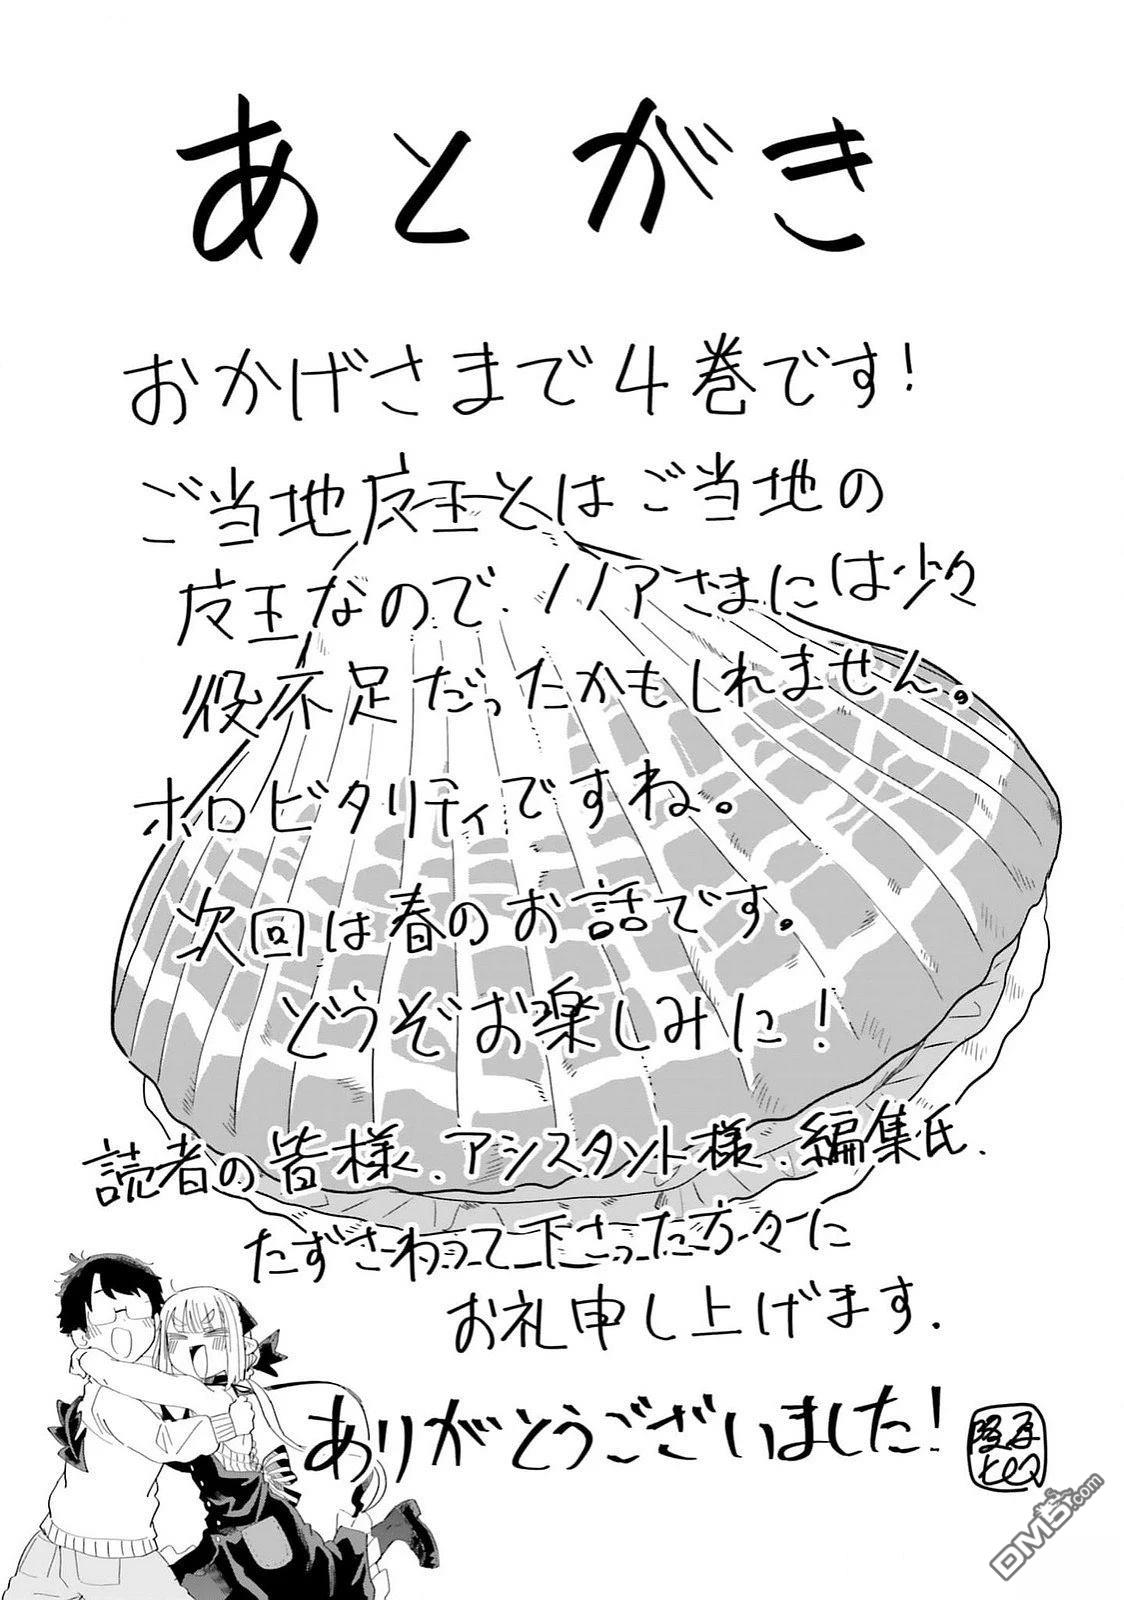 あとがき
おかげさまで4巻です!
ご当地魔王とはご当地の
魔王なので、ノノアさまには少々
役不足だったかもしれません。
ホロビタリティですね。
次回は春のお話です。
どうぞお楽しみに!
読者の皆様、アシスタント様、編集氏、
たずさわって下さった方々に
お礼申し上げます。
ありがとうございました!
DMB.com